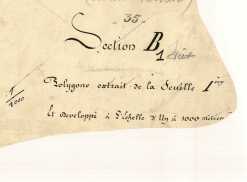 35
Section B
1
1/2000
Polygone extrait de la feuille 1ère
Et développé à l'échelle d'Un à 1000 mètres